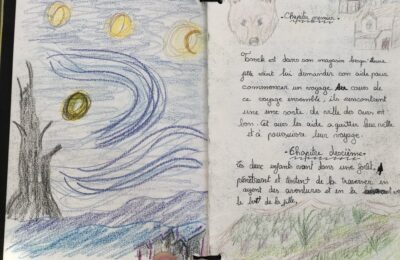 Chapitre premier.
Tonck et dans son magasin lorsqu'une
fille vient lui demander son aide pour
commencer un voyage. Au cours de
ce voyage ensemble, ils rencontrent
une sorte de ville des ours et
l'on les aide a quitter leur ville
et à poursuivre leur voyage.
Chapitre deuxième.
Les deux enfants vont dans une forêt,
pénétrent et tentent de la traverser en
ayant des aventures et en la
but de la fille.